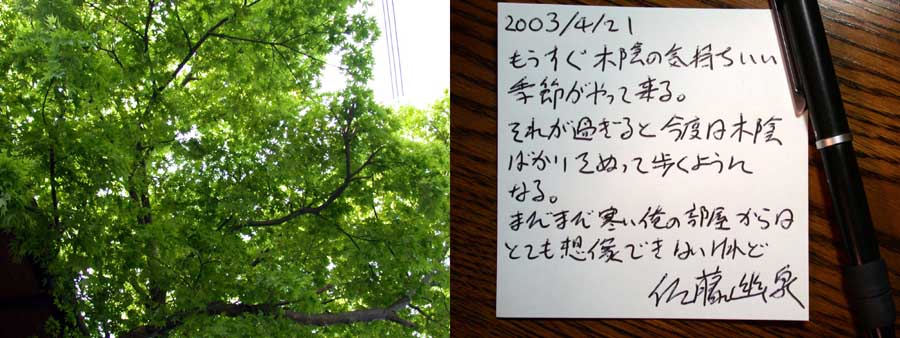 2003/4/21
もうすぐ木陰の気持ちいい
季節がやって来る。
それが過ぎると今度は木陰
ばかりをぬって歩くように
なる。
まだまだ寒い俺の部屋からは
とても想像できないけれど
佐藤幽泉